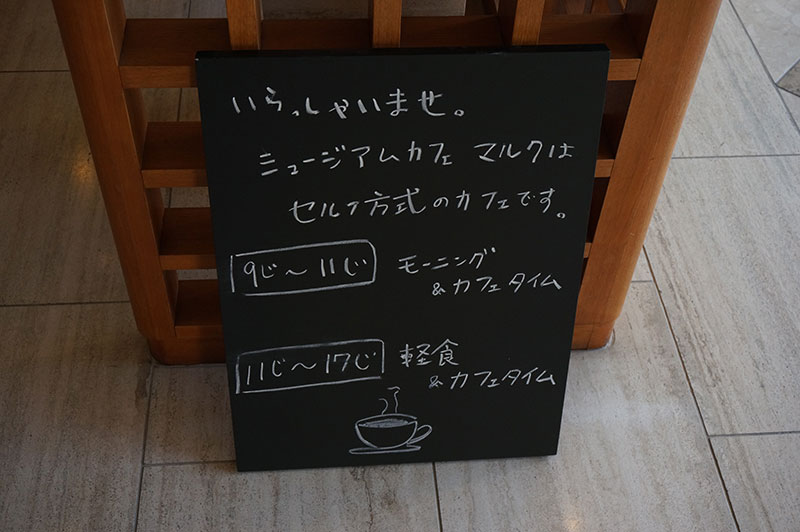 いらっしゃいませ。
ミュージアムカフェ マルクは
セルフ方式のカフェです。
9じ〜11じ モーニング
&カフェタイム
11じ〜17じ 軽食
&カフェタイム